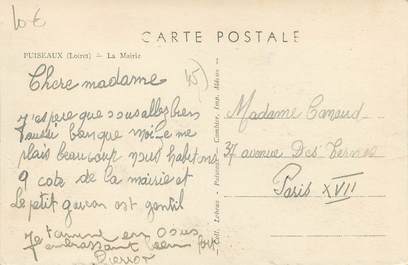 10 €
CARTE POSTALE
PUISEAUX (Loiret) — La Mairie
45
Chere madame
J'espere que vous allez bien
aussi bien que moi Je me
plais beaucoup nous habitons
a cote de la mairie et
le petit garcon est gentil
Je termine en vous
embrassant bien fort
Pierrot
Coll. Lebrun - Puiseaux - Combier, Imp. Mâcon
Madame Canaud
37 avenue Des Ternes
Paris XVII